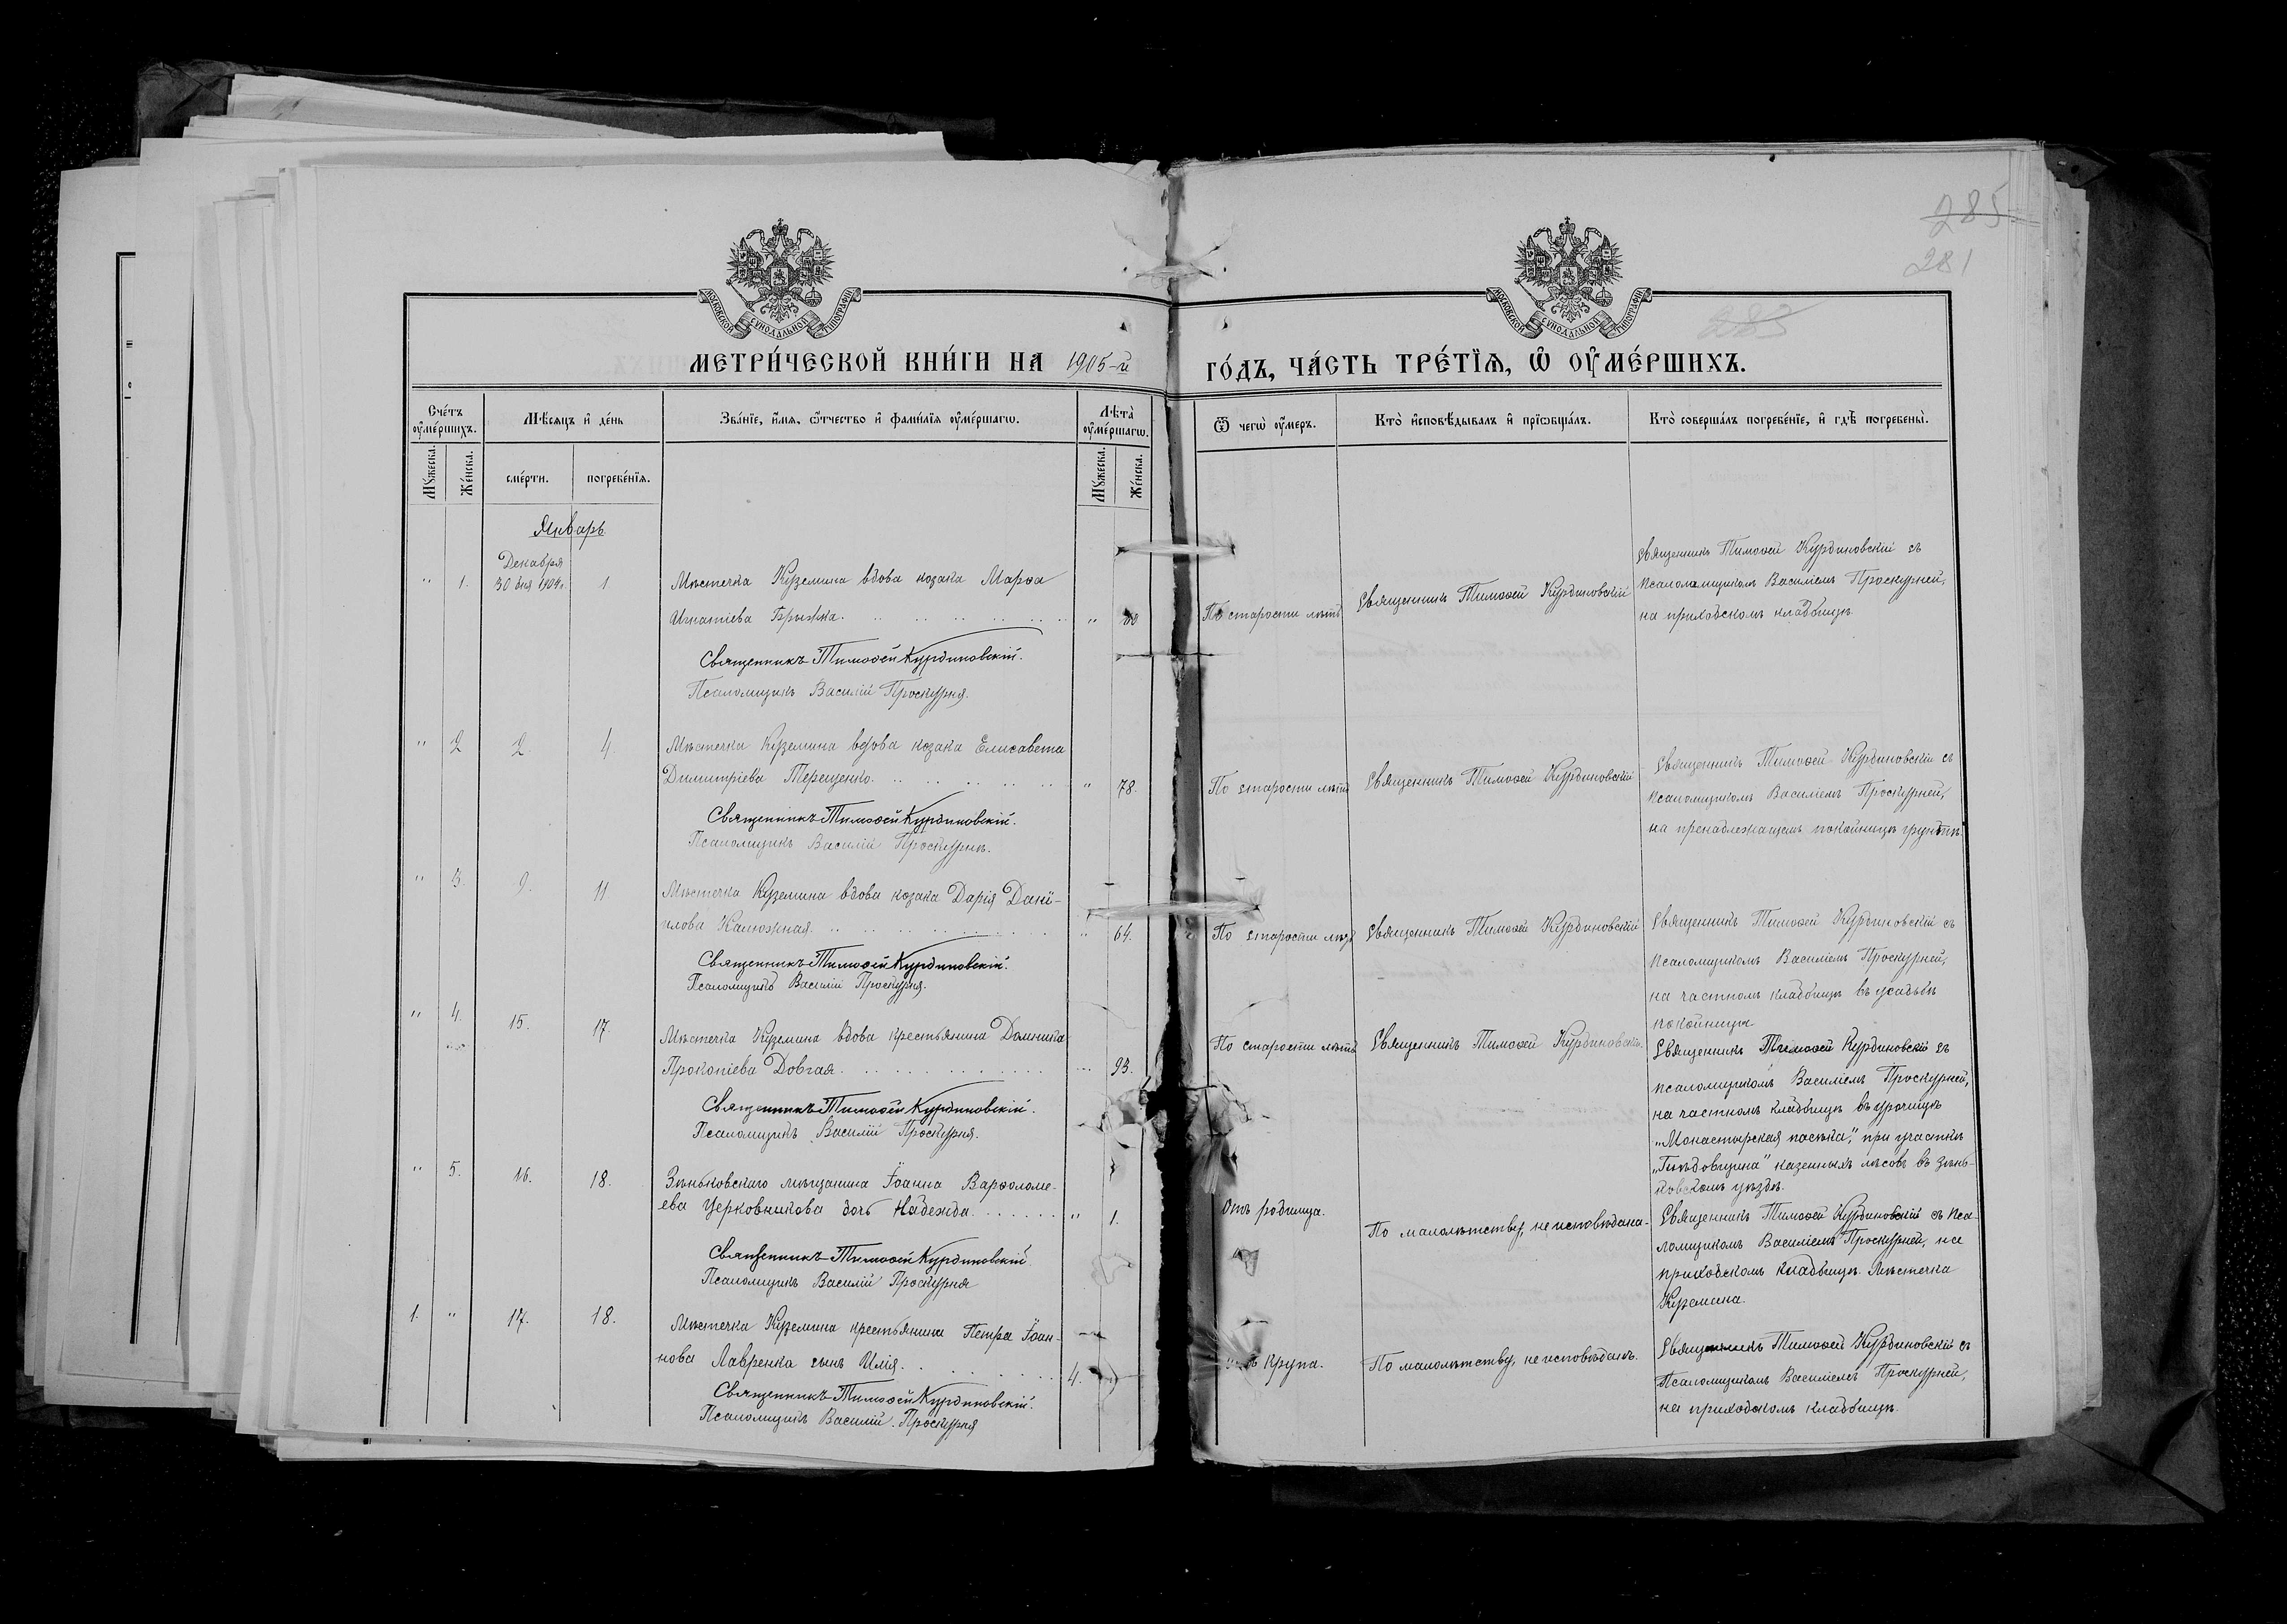 285
281
283
МОСКОВСКОЙ СѴНОДАЛЬНОЙ ТИПОГРАФІИ
МОСКОВСКОЙ СѴНОДАЛЬНОЙ ТИПОГРАФІИ
МЕТРИ́ЧЕСКОЙ КНИ́ГИ НА 1905-й
ГО́ДЪ, ЧА́СТЬ ТРЕ́ТЇѦ, Ѽ ОУ҆МЕ́РШИХЪ.
Сче́тъ оу҆ме́ршихъ.
Мѣ́сѧцъ и҆ де́нь
Зва́нїе, и҆́мѧ, ѻ҆́тчество и҆ фами́лїѧ оу҆ме́ршагѡ.
Лѣ́та̀ оу҆ме́ршагѡ.
Ѿ чегѡ̀ оу҆́меръ.
Кто̀ и҆сповѣ́дывалъ и҆ прїѡбща́лъ.
Кто̀ соверша́лъ погребе́нїе, и҆ гдѣ̀ погребены̀.
Мꙋ́жеска.
Же́нска.
сме́рти.
погребе́нїѧ.
Мꙋ́жеска.
Же́нска.
Январь
Декабря
" 1. 30 дня 1904 г. 1
Мѣстечка Куземина вдова козака Марѳа
Игнатіева Брыжка. "
Священникъ Тимоѳей Курдиновскій.
Псаломщикъ Василій Проскурня.
По старости лѣтъ
Священникъ Тимоѳей Курдиновскій
Священникъ Тимоѳей Курдиновскій съ
псаломщикомъ Василіемъ Проскурней,
на приходскомъ кладбищѣ
" 2 2. 4
Мѣстечка Куземина вдова козака Елисавета
Димитріева Терещенко. " 78.
Священникъ Тимоѳей Курдиновскій.
Псаломщикъ Василій Проскурня.
По старости лѣтъ
Священникъ Тимоѳей Курдиновскій
Священникъ Тимоѳей Курдиновскій съ
псаломщикомъ Василіемъ Проскурней,
на пренадлежащемъ покойницѣ грунтѣ.
" 3. 9. 11
Мѣстечка Куземина вдова козака Дарія Дані-
илова Калюжная. " 64.
Священникъ Тимоѳей Курдиновскій.
Псаломщикъ Василій Проскурня.
По старости лѣтъ
Священникъ Тимоѳей Курдиновскій
Священникъ Тимоѳей Курдиновскій съ
псаломщикомъ Василіемъ Проскурней,
на частномъ кладбищѣ въ усадьбѣ
покойницы
" 4. 15. 17.
Мѣстечка Куземина вдова крестьянина Домника
Прокопіева Довгая. 93.
Священникъ Тимоѳей Курдиновскій.
Псаломщикъ Василій Проскурня.
По старости лѣтъ
Священникъ Тимоѳей Курдиновскій.
Священникъ Тимоѳей Курдиновскій съ
псаломщикомъ Василіемъ Проскурней,
на частномъ кладбищѣ въ урочищѣ
„Монастырская пасѣка", при участкѣ
казенныхъ лѣсовъ въ Зѣнь-
ковскомъ уѣздѣ.
" 5. 16. 18.
Зѣньковскаго мѣщанина Іоанна Варѳоломе-
ева Церковникова дочь Надежда. " 1.
Священникъ Тимоѳей Курдиновскій
Псаломщикъ Василій Проскурня
Отъ родимца.
По малолѣтству, не исповѣдана.
Священникъ Тимоѳей Курдиновскій съ пса-
ломщикомъ Василіемъ Проскурней, на
приходскомъ кладбищѣ мѣстечка
Куземина.
1. " 17. 18.
Мѣстечка Куземина крестьянина Петра Іоан-
нова Лавренка сынъ Илія. 4.
Священникъ Тимоѳей Курдиновскій.
Псаломщикъ Василій Проскурня
крупа.
По малолѣтству, не исповѣданъ.
Священникъ Тимоѳей Курдиновскій съ
псаломщикомъ Василіемъ Проскурней,
на приходскомъ кладбищѣ.